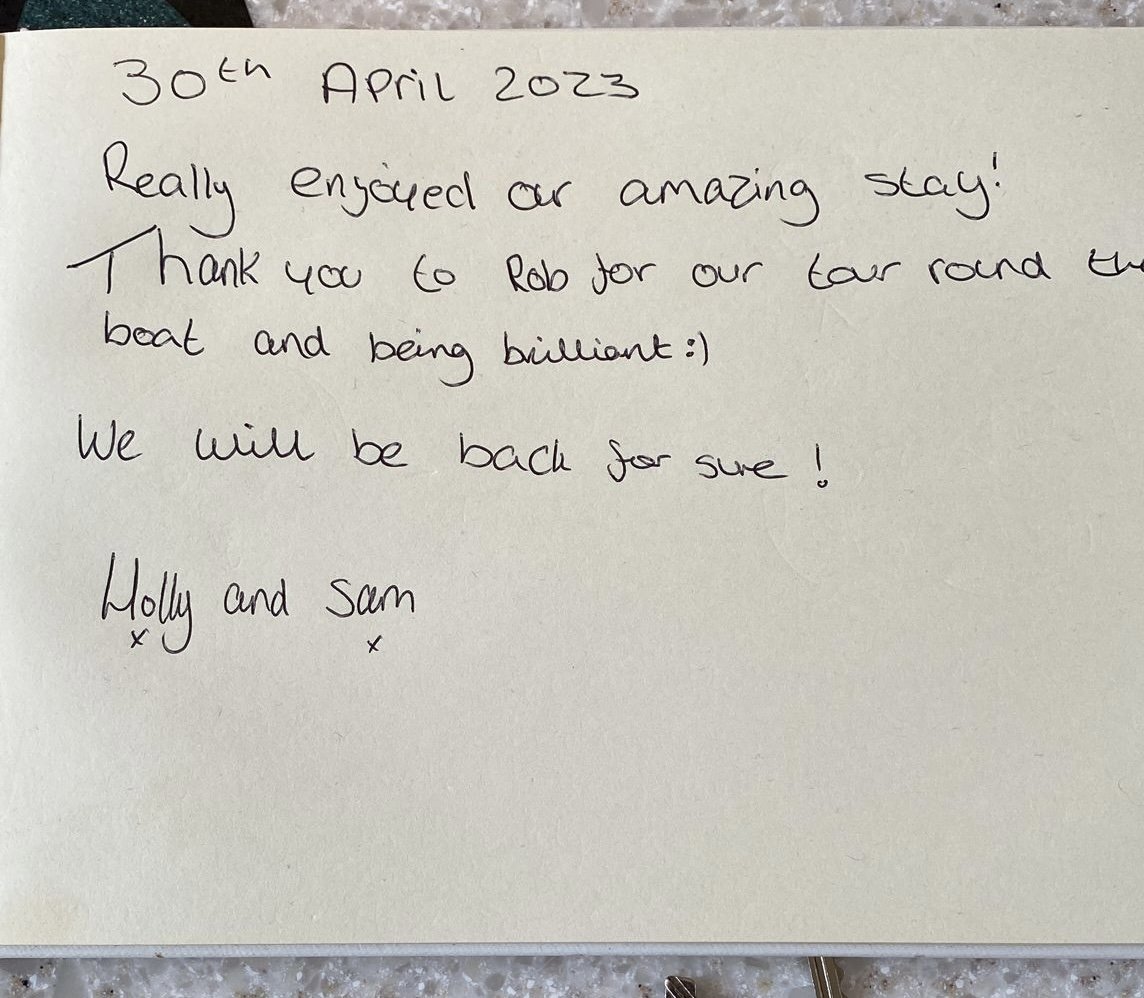 30th April 2023
Really enjoyed our amazing stay!
Thank you to Rob for our tour round the
boat and being brilliant :)
We will be back for sure !
Holly and Sam
x x